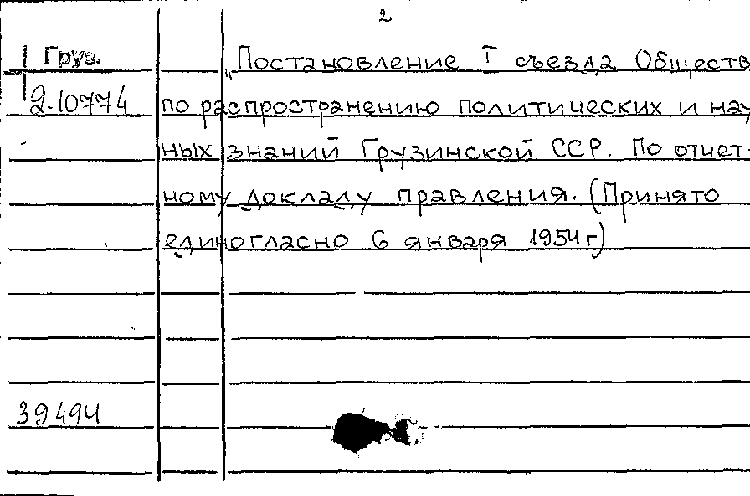 2
Груз.
2.10774
"Постановление I съезда Обществ
по распространению политических и нау
ных знаний Грузинской ССР. По отчет-
ному докладу правления. (Принято
единогласно 6 января 1954 г)
39494